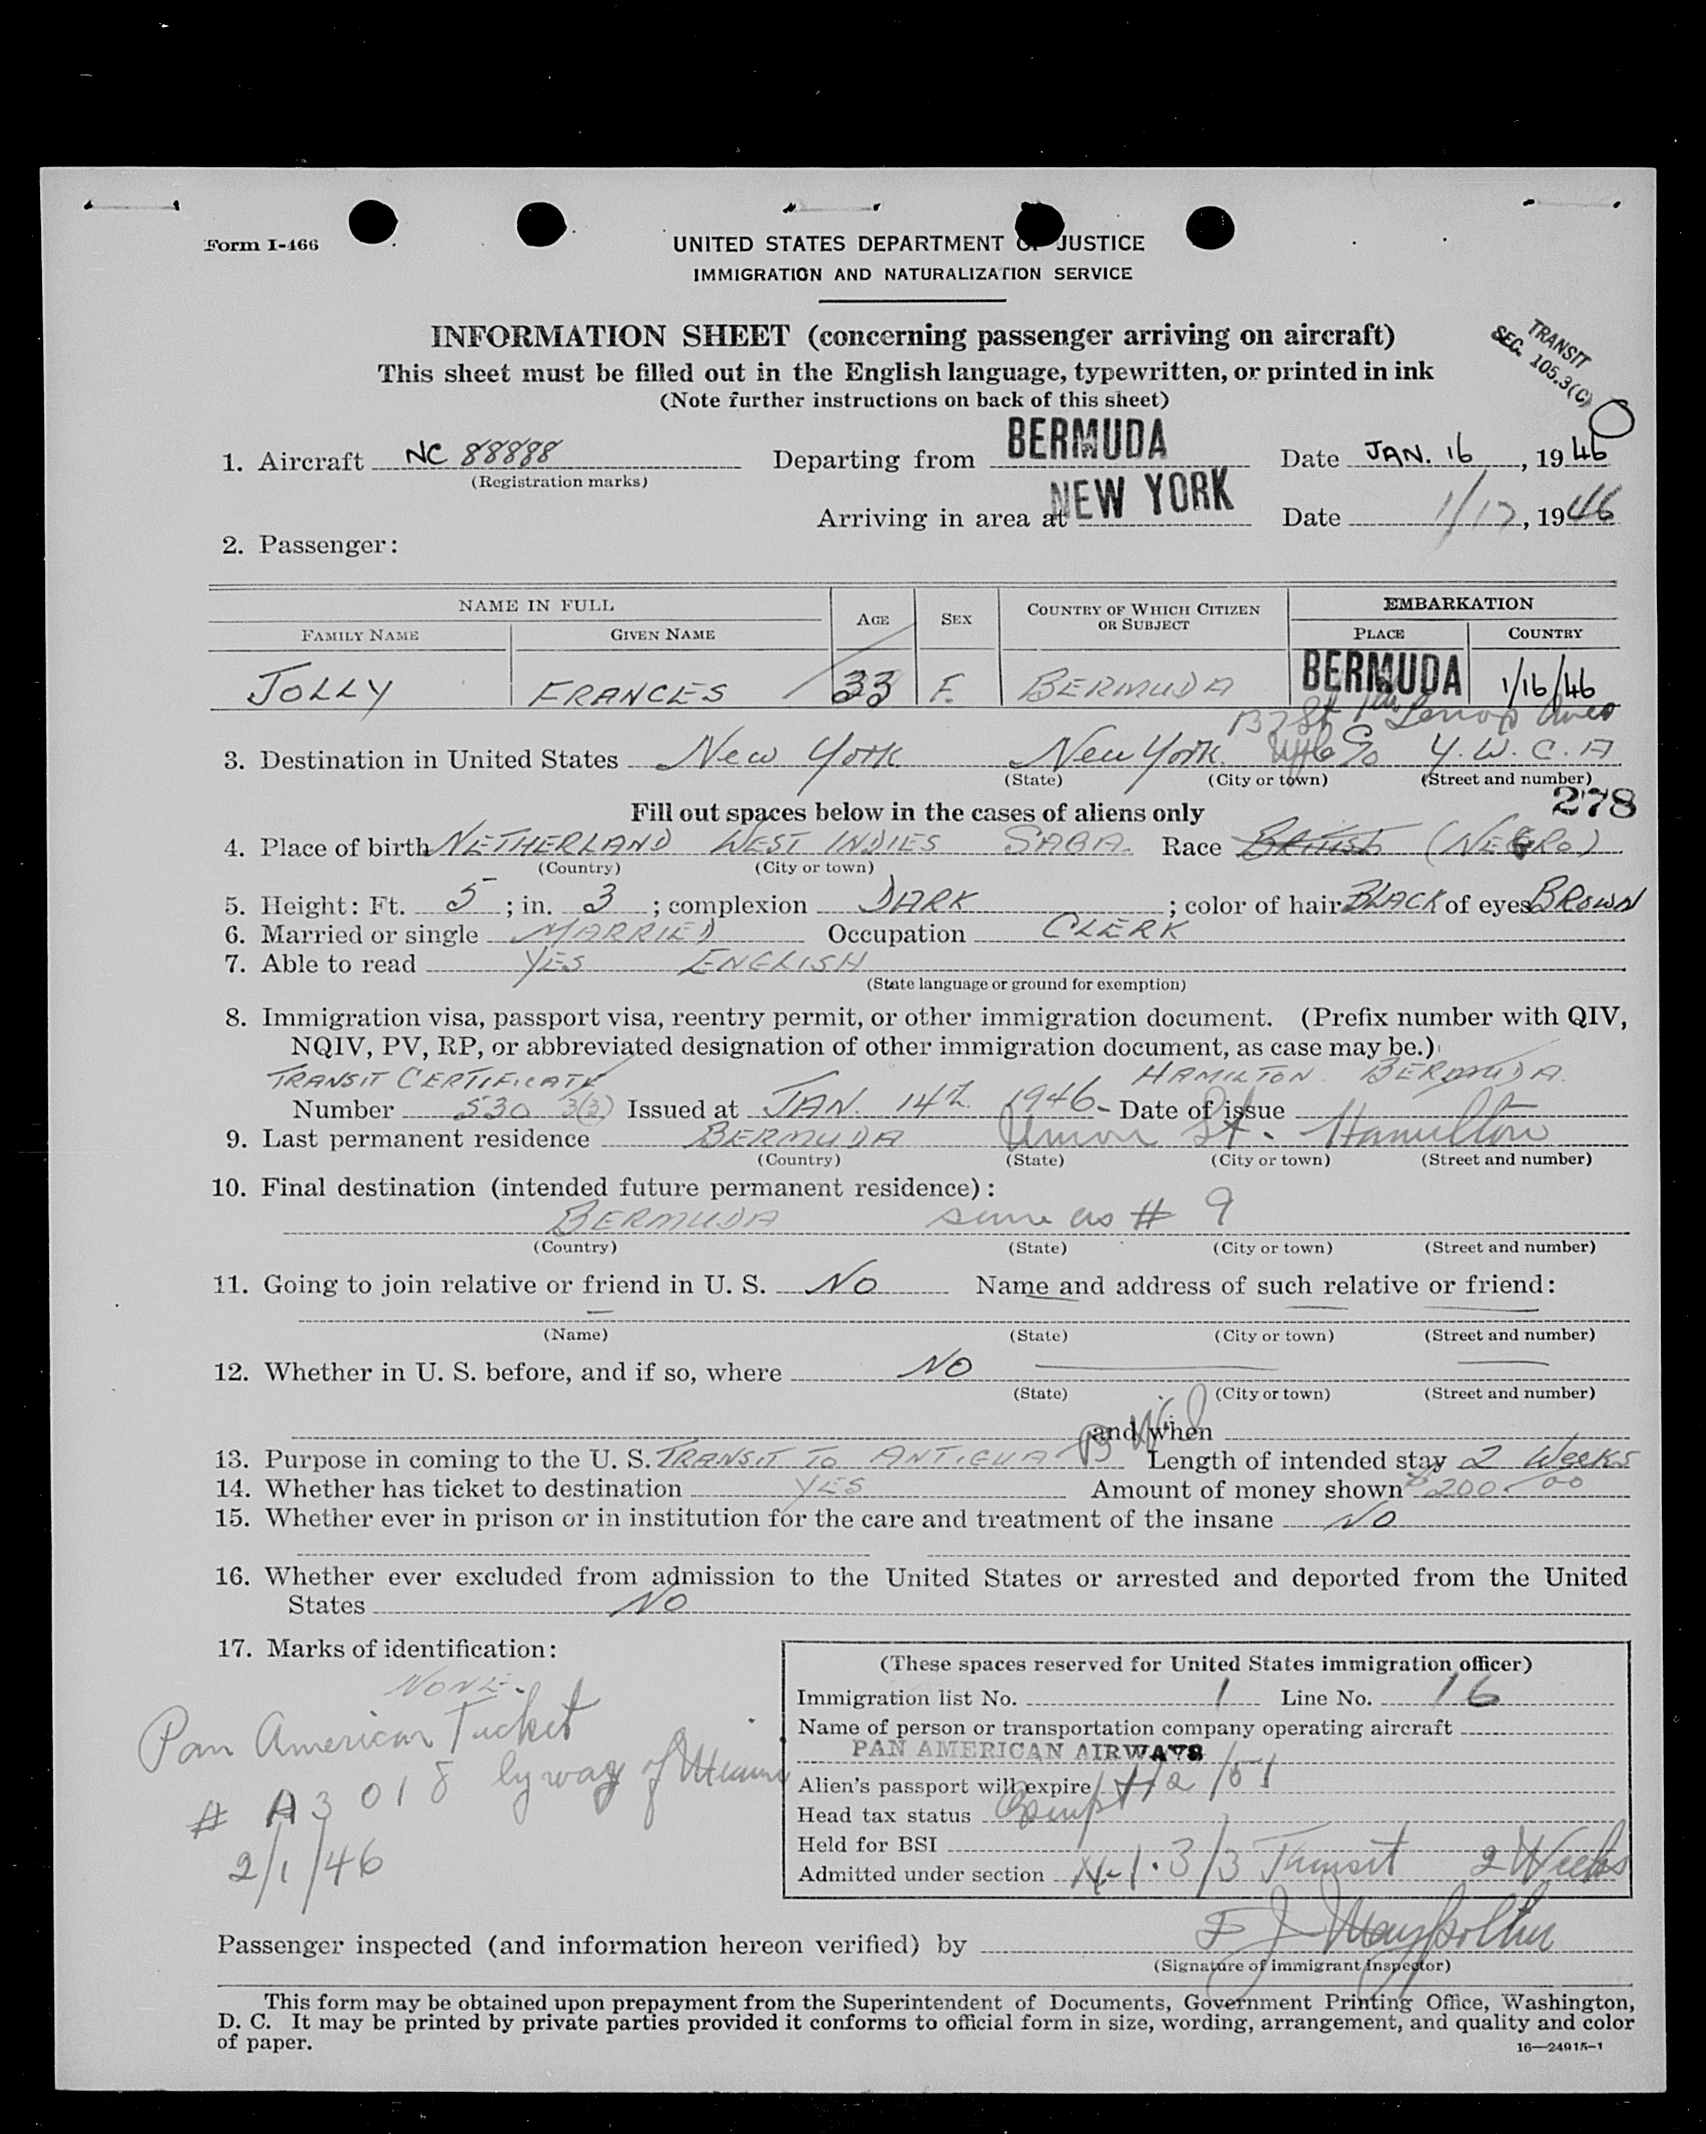 Form I-466
UNITED STATES DEPARTMENT OF JUSTICE
IMMIGRATION AND NATURALIZATION SERVICE
INFORMATION SHEET (concerning passenger arriving on aircraft)
TRANSIT
SEC. 105.3(C)
This sheet must be filled out in the English language, typewritten, or printed in ink
(Note further instructions on back of this sheet)
1. Aircraft NC 88888 Departing from BERMUDA Date JAN. 16, 1946
(Registration marks)
Arriving in area at NEW YORK Date 1/17, 1946
2. Passenger:
NAME IN FULL AGE SEX COUNTRY OF WHICH CITIZEN OR SUBJECT EMBARKATION
FAMILY NAME GIVEN NAME PLACE COUNTRY
JOLLY FRANCES 33 F. BERMUDA BERMUDA 1/16/46
137 St Lenox Aves
3. Destination in United States New York New York c/o Y.W.C.A
(State) (City or town) (Street and number)
278
Fill out spaces below in the cases of aliens only
4. Place of birth NETHERLAND WEST INDIES SABA. Race British (NEGRO)
(Country) (City or town)
5. Height: Ft. 5; in. 3; complexion DARK; color of hair BLACK of eyes BROWN
6. Married or single MARRIED Occupation CLERK
7. Able to read YES ENGLISH
(State language or ground for exemption)
8. Immigration visa, passport visa, reentry permit, or other immigration document. (Prefix number with QIV,
NQIV, PV, RP, or abbreviated designation of other immigration document, as case may be.)
TRANSIT CERTIFICATE HAMILTON BERMUDA.
Number 530 3(3) Issued at JAN. 14th 1946- Date of issue
9. Last permanent residence BERMUDA Union St. Hamilton
(Country) (State) (City or town) (Street and number)
10. Final destination (intended future permanent residence):
BERMUDA same as # 9
(Country) (State) (City or town) (Street and number)
11. Going to join relative or friend in U. S. NO Name and address of such relative or friend:
(Name) (State) (City or town) (Street and number)
12. Whether in U. S. before, and if so, where NO
(State) (City or town) (Street and number)
and when
13. Purpose in coming to the U. S. TRANSIT TO ANTIGUA B W I Length of intended stay 2 Weeks
14. Whether has ticket to destination YES Amount of money shown $200.00
15. Whether ever in prison or in institution for the care and treatment of the insane NO
16. Whether ever excluded from admission to the United States or arrested and deported from the United
States NO
17. Marks of identification:
NONE.
Pan American Ticket
# A3018 by way of Miami
2/1/46
(These spaces reserved for United States immigration officer)
Immigration list No. 1 Line No. 16
Name of person or transportation company operating aircraft
PAN AMERICAN AIRWAYS
Alien's passport will expire 1/2/51
Head tax status Exempt
Held for BSI
Admitted under section 3/3 Transit 2 Weeks
Passenger inspected (and information hereon verified) by
(Signature of immigrant inspector)
This form may be obtained upon prepayment from the Superintendent of Documents, Government Printing Office, Washington,
D. C. It may be printed by private parties provided it conforms to official form in size, wording, arrangement, and quality and color
of paper.
16—24915-1